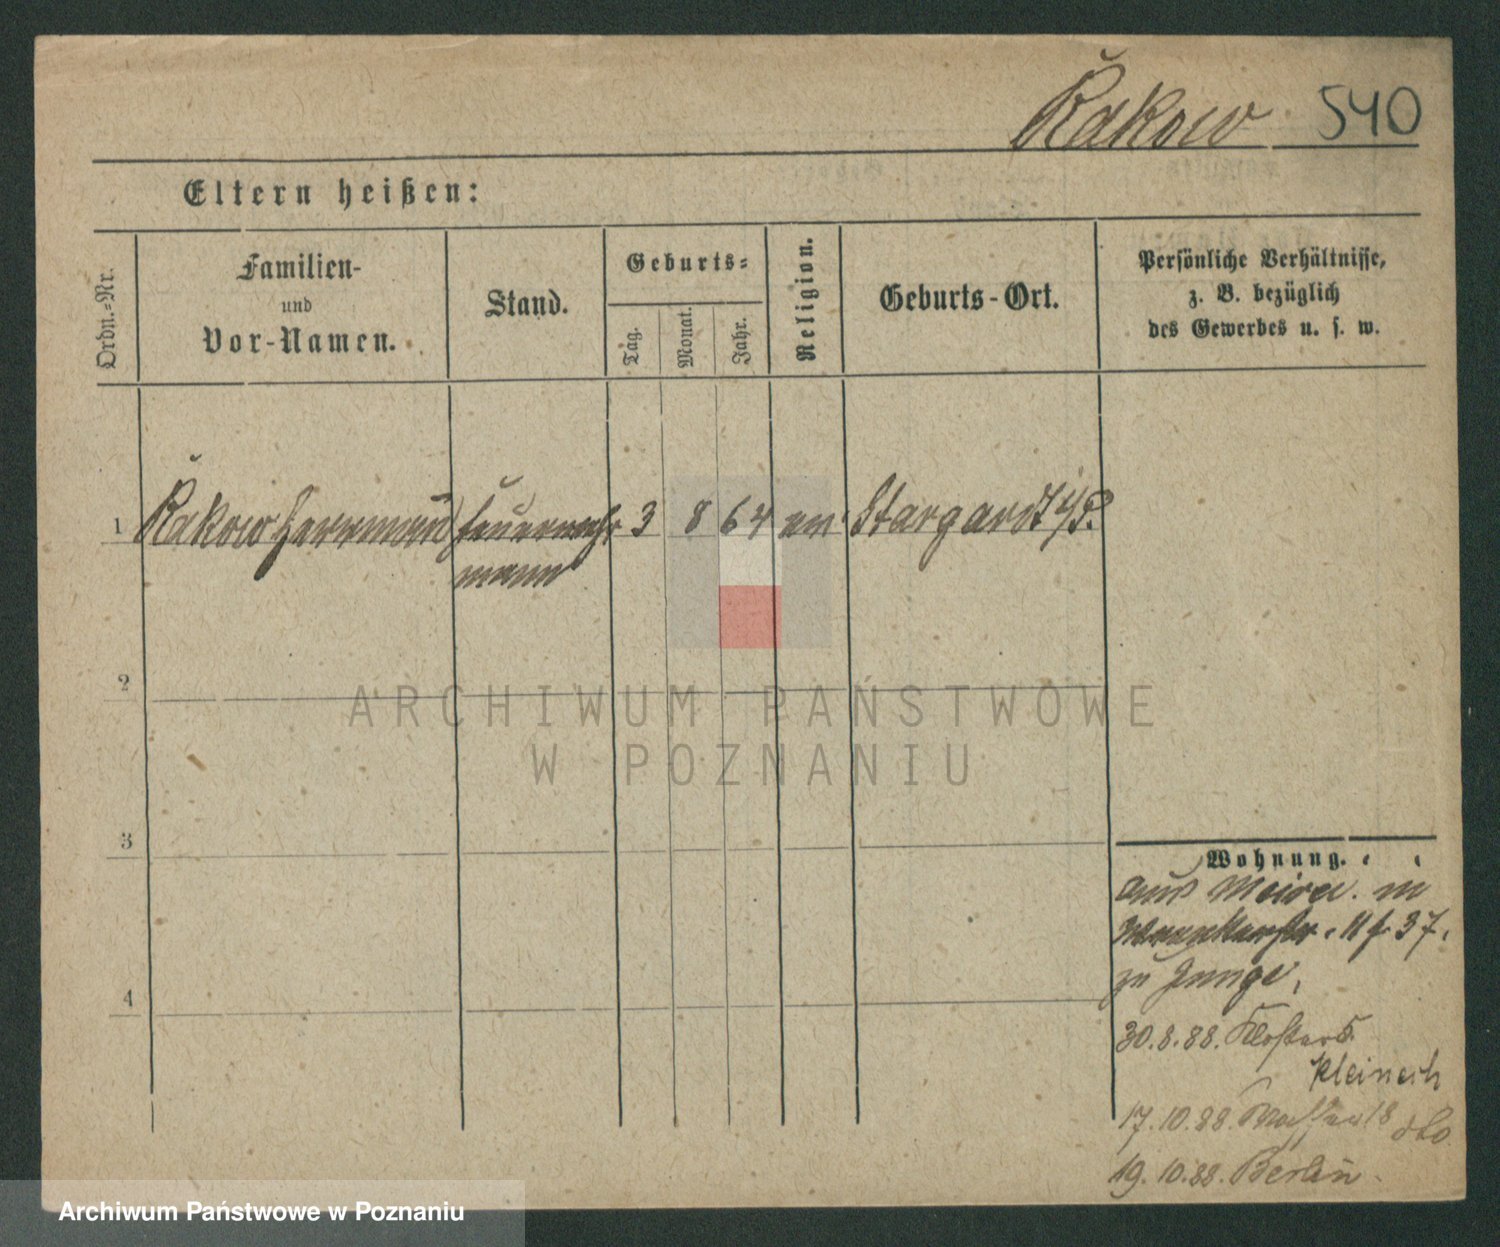 Rakow 540
Eltern heißen:
Ordn.-Nr.
Familien-
und
Vor-Namen.
Stand.
Geburts-
Tag.
Monat.
Jahr.
Religion.
Geburts-Ort.
Persönliche Verhältnisse,
z. B. bezüglich
des Gewerbes u. s. w.
1 Rakow Herrmann Feuerwehr 3 8 64 ev. Stargard i/P.
mann
2
ARCHIWUM PAŃSTWOWE
W POZNANIU
3
Wohnung.
aus
11 f. 37.
zu Junge,
4
30.8.88. Klosterst. 5.
17.10.88. 18 dto
19.10.88. Berlin.
Archiwum Państwowe w Poznaniu